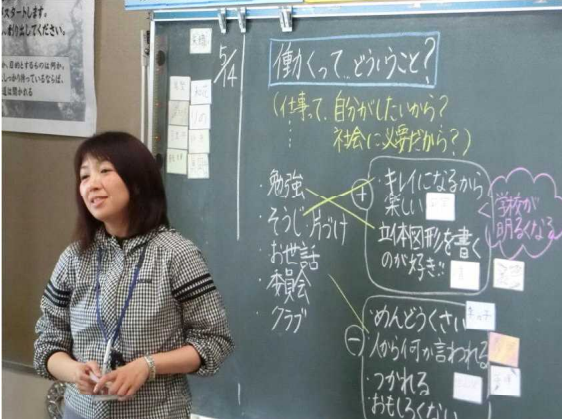 スタートします。
創り出してください。
5/14
働くって‥どういうこと？
(仕事って、自分がしたいから？
社会に必要だから？)
・勉強
・そうじ・片づけ
・お世話
・委員会
・クラブ
＋
・キレイになるから
楽しい
立体図形を書く
のが好き!!
学校が
明るくなる
－
・めんどうくさい
・人から何か言われる
・つかれる
・おもしろくない